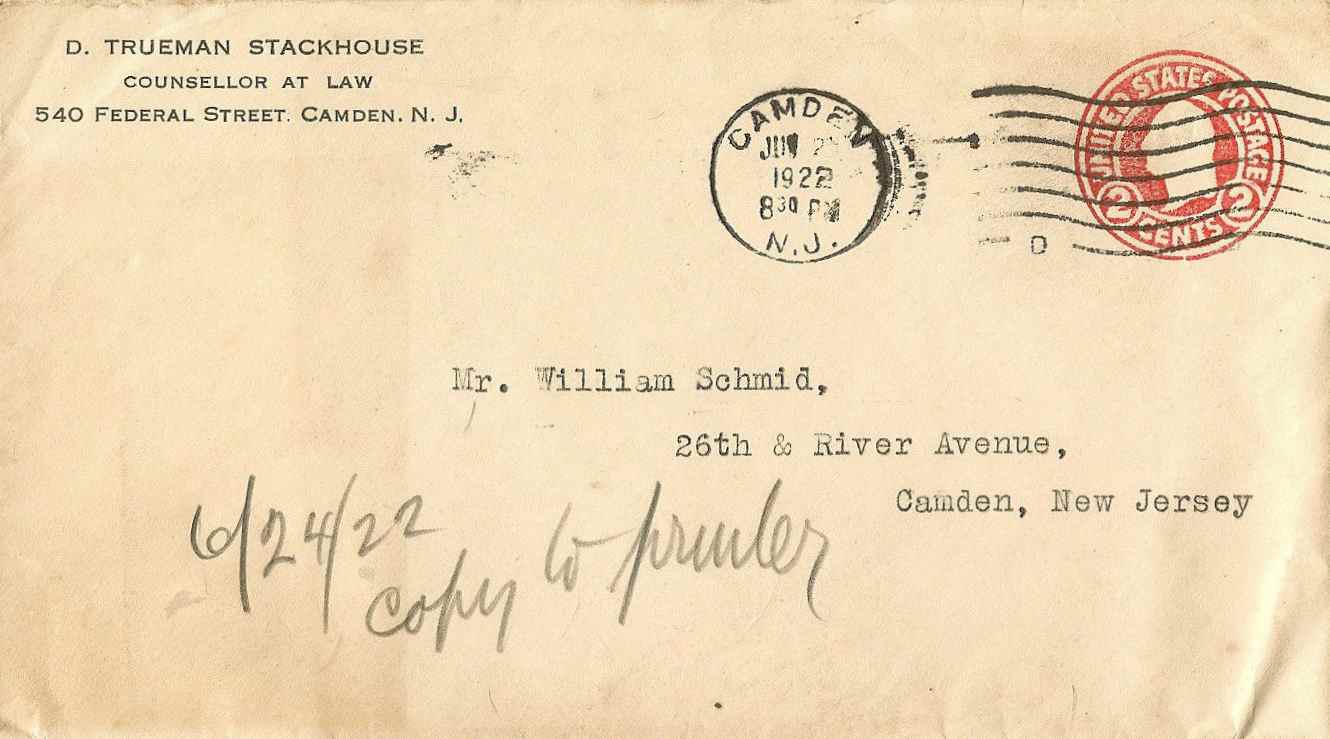 D. TRUEMAN STACKHOUSE
COUNSELLOR AT LAW
540 FEDERAL STREET. CAMDEN. N. J.
CAMDEN
JUN 2
1922
8 30 PM
N.J.
D
UNITED STATES POSTAGE
2 CENTS 2
Mr. William Schmid,
26th & River Avenue,
Camden, New Jersey
6/24/22
copy to printer